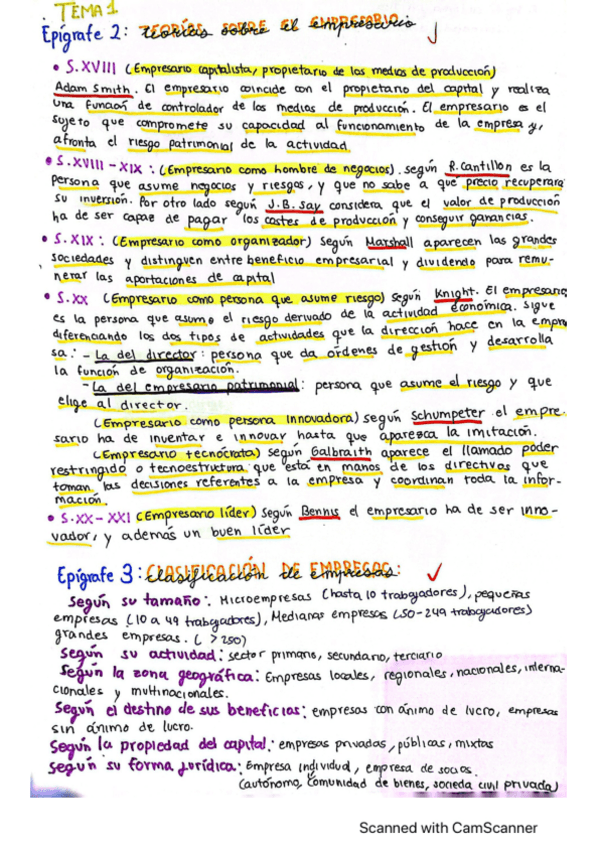 TEMA 1
Epígrafe 2: teorías sobre el empresario
• S.XVIII (Empresario capitalista, propietario de los medios de producción)
Adam Smith. El empresario coincide con el propietario del capital y realiza
una función de controlador de los medios de producción. El empresario es el
sujeto que compromete su capacidad al funcionamiento de la empresa y,
afronta el riesgo patrimonial de la actividad
• S.XVIII-XIX: (Empresario como hombre de negocios). según R.Cantillon es la
persona que asume negocios y riesgos, y que no sabe a que precio recuperará
su inversión. Por otro lado según J.B.Say considera que el valor de producción
ha de ser capaz de pagar los costes de producción y conseguir ganancias.
• S.XIX: (Empresario como organizador) Según Marshall aparecen las grandes
sociedades y distinguen entre beneficio empresarial y dividendo para remu-
nerar las aportaciones de capital
• S.XX (Empresario como persona que asume riesgo) según Knight. El empresario
es la persona que asume el riesgo derivado de la actividad económica. Sigue
diferenciando los dos tipos de actividades que la dirección hace en la empre
sa: - La del director: persona que da órdenes de gestión y desarrolla
la función de organización.
- La del empresario patrimonial: persona que asume el riesgo y que
elige al director.
(Empresario como persona innovadora) según Schumpeter el empre-
sario ha de inventar e innovar hasta que aparezca la imitación.
(Empresario tecnócrata) según Galbraith aparece el llamado poder
restringido o tecnoestructura que está en manos de los directivos que
toman las decisiones referentes a la empresa y coordinan toda la infor-
mación.
• S.XX-XXI (Empresario líder) Según Bennis el empresario ha de ser inno-
vador, y además un buen líder
Epígrafe 3: clasificación de empresas:
Según su tamaño: Microempresas (hasta 10 trabajadores), pequeñas
empresas (10 a 49 trabajadores), Medianas empresas (50-249 trabajadores)
grandes empresas. ( >250)
Según su actividad: sector primario, secundario, terciario
Según la zona geográfica: Empresas locales, regionales, nacionales, interna-
cionales y multinocionales.
Según el destino de sus beneficios: empresas con ánimo de lucro, empresas
sin ánimo de lucro.
Según la propiedad del capital: empresas privadas, públicas, mixtas
Según su forma jurídica: Empresa individual, empresa de socios.
(autónomo, comunidad de bienes, socieda civil privada)
Scanned with CamScanner